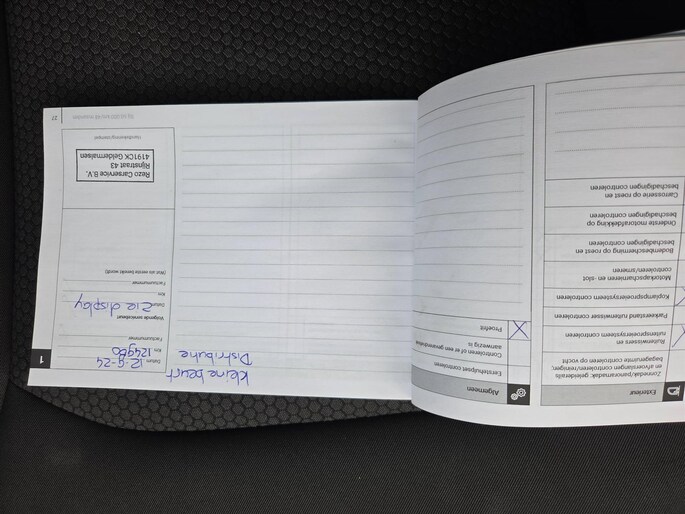 Exterieur
Zonnedak/panoramadak: geleiderails
en afvoerslangen controleren/reinigen;
bagageruimte controleren op vocht
Ruitenwissers en
ruitensproeiersysteem controleren
Parkeerstand ruitenwisser controleren
Koplampsproeiersysteem controleren
Motorkapscharnieren en -slot
controleren/smeren
Bodembescherming op roest en
beschadigingen controleren
Onderste motorafdekking op
beschadigingen controleren
Carrosserie op roest en
beschadigingen controleren
Algemeen
Eerstehulpset controleren
Controleren of er een gevarendriehoek
aanwezig is
Proefrit
X
X
X
Kleine beurt
Distributie
1
Datum 12-9-24
Km 124980
Factuurnummer
Volgende servicebeurt
Datum Zie display
Km
Factuurnummer
(Wat als eerste bereikt wordt)
Rezo Carservice B.V.
Rijnstraat 43
4191CK Geldermalsen
Handtekening/stempel
37